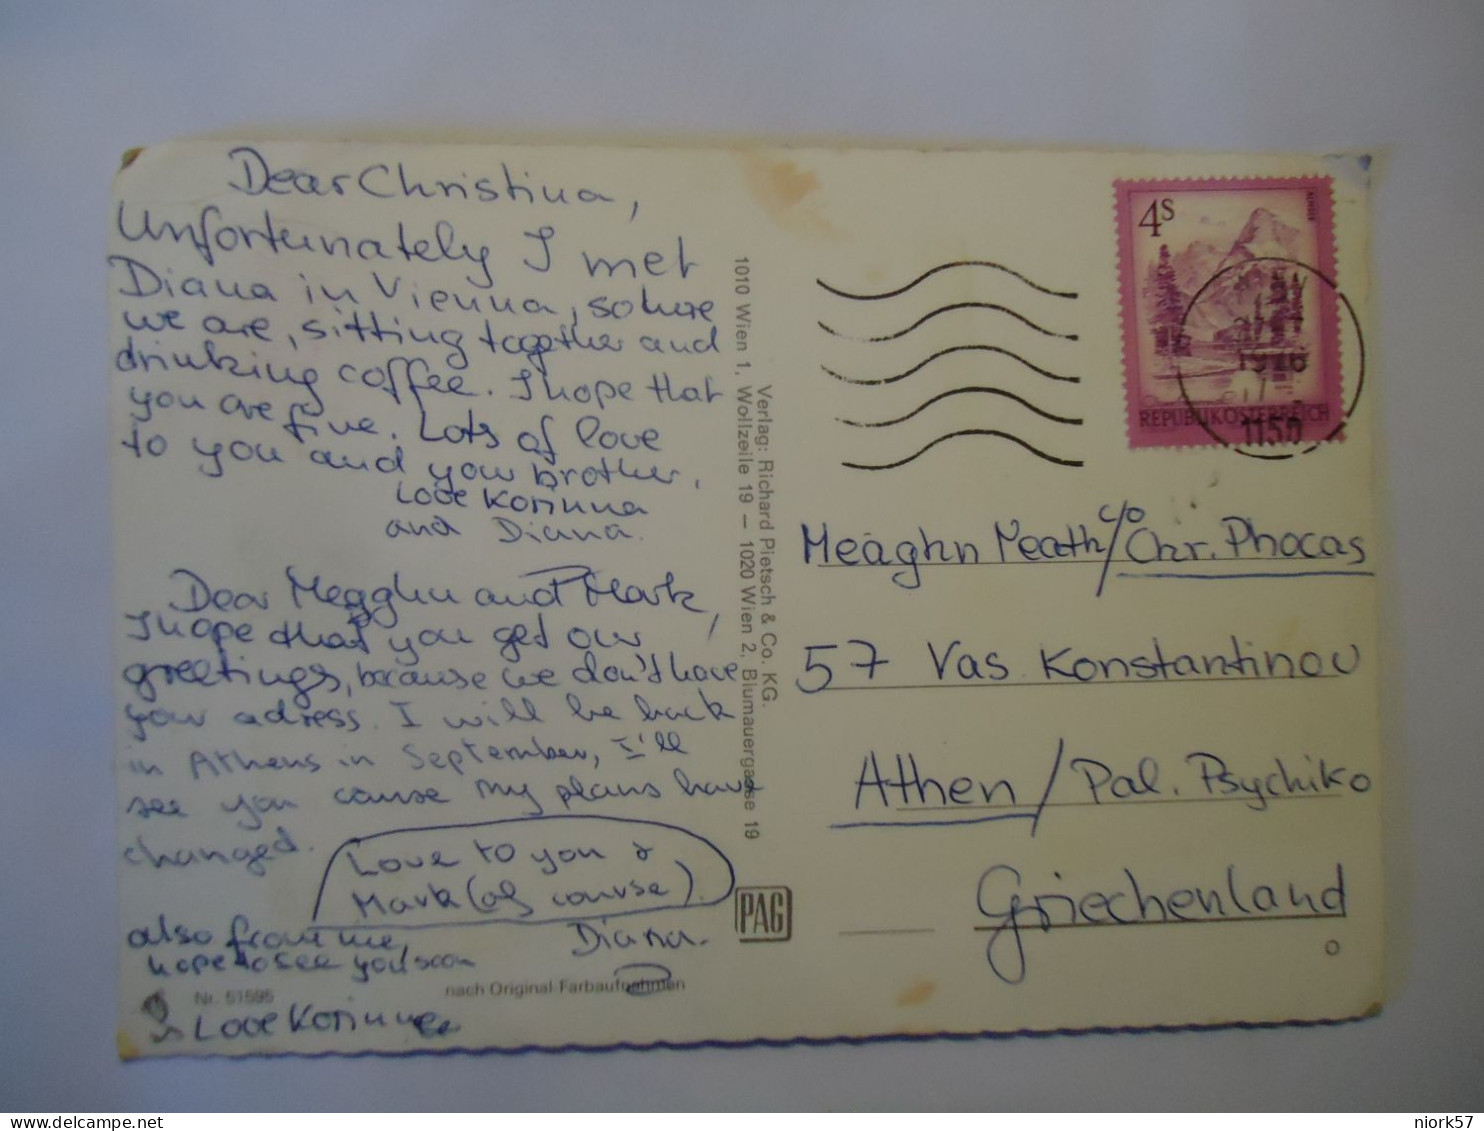 Dear Christina,
Unfortunately I met
Diana in Vienna, so here
we are, sitting together and
drinking coffee. I hope that
you are fine. Lots of love
to you and your brother.
Love Korinna
and Diana.
Dear Megghn and Mark,
I hope that you get our
greetings, because we don't have
your adress. I will be back
in Athens in September, I'll
see you cause my plans have
changed.
Love to you &
Mark (of course).
Diana.
also from me,
hope to see you soon
Love Korinna
Nr. 51595
nach Original-Farbaufnahmen
Verlag: Richard Pietsch & Co. KG.
1010 Wien 1, Wollzeile 19 – 1020 Wien 2, Blumauergasse 19
PAG
4S
ALMSEE
REPUBLIK ÖSTERREICH
1150
Meaghn Meath c/o Chr. Phocas
57 Vas. Konstantinou
Athen / Pal. Psychiko
Griechenland
niork57